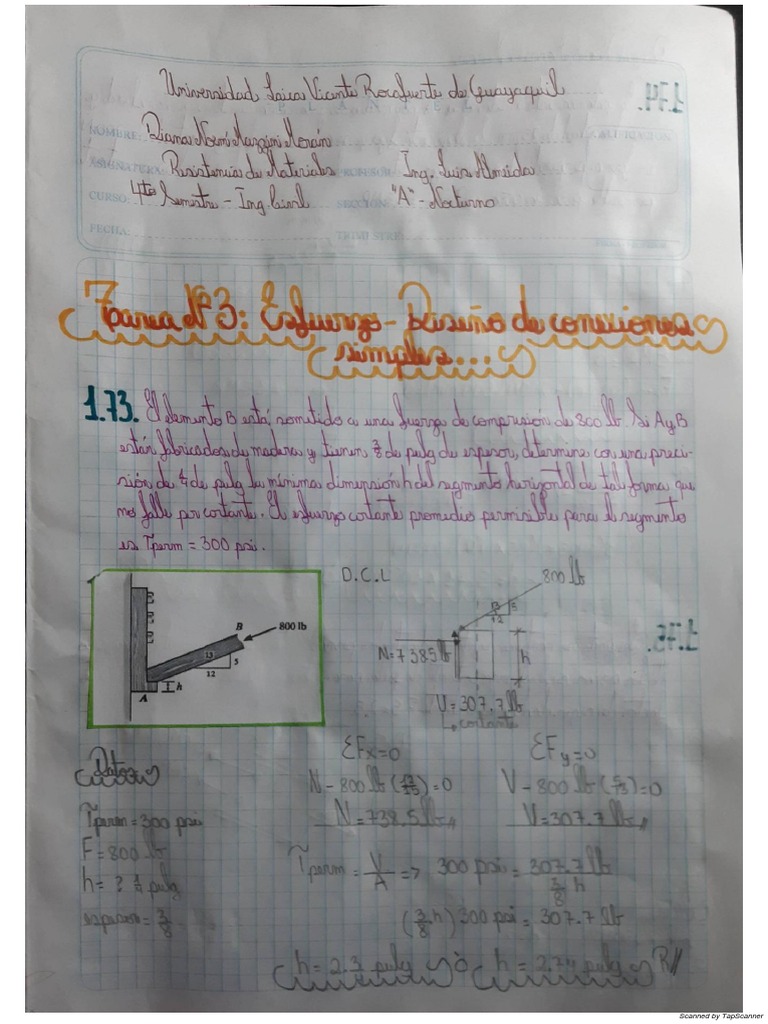 Universidad Laica Vicente Rocafuerte de Guayaquil
1.74.
NOMBRE: Diana Noemí Mazzini Morán
ASIGNATURA: Resistencias de Materiales PROFESOR: Ing. Luis Almeida
CURSO: 4to Semestre - Ing. Civil SECCIÓN: "A" - Nocturno
FECHA: TRIMESTRE:
Tarea Nº 3: Esfuerzo - Diseño de conexiones
simples...
1.73. El elemento B está sometido a una fuerza de compresión de 800 lb. Si A y B
están fabricados de madera y tienen 3/8 de pulg de espesor, determine con una preci-
sión de 1/4 de pulg la mínima dimensión h del segmento horizontal de tal forma que
no falle por cortante. El esfuerzo cortante promedio permisible para el segmento
es τperm = 300 psi.
D.C.L
800 lb
13 5
12
B
800 lb
13
5
12
h
A
N=738.5 lb
h
V=307.7 lb
↳ cortante
1.75.
Datos
τperm = 300 psi
F = 800 lb
h = ? 1/4 pulg
espesor = 3/8
ΣFx=0
N - 800 lb (12/13) = 0
N = 738.5 lb
ΣFy=0
V - 800 lb (5/13) = 0
V = 307.7 lb
τperm = V/A => 300 psi = 307.7 lb / 3/8 h
(3/8 h) 300 psi = 307.7 lb
h = 2.3 pulg ó h = 2.74 pulg R//
Scanned by TapScanner